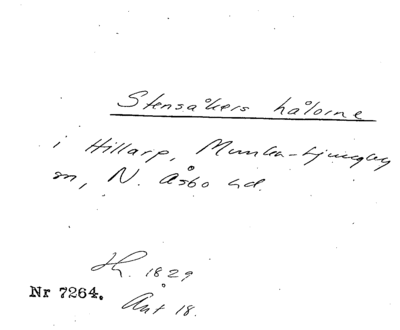 Stensåkers hålorne
i Hillarp, Munka-Ljungby
sn, N. Åsbo hd.
Th. 1829
Nr 7264.
Akt 18.